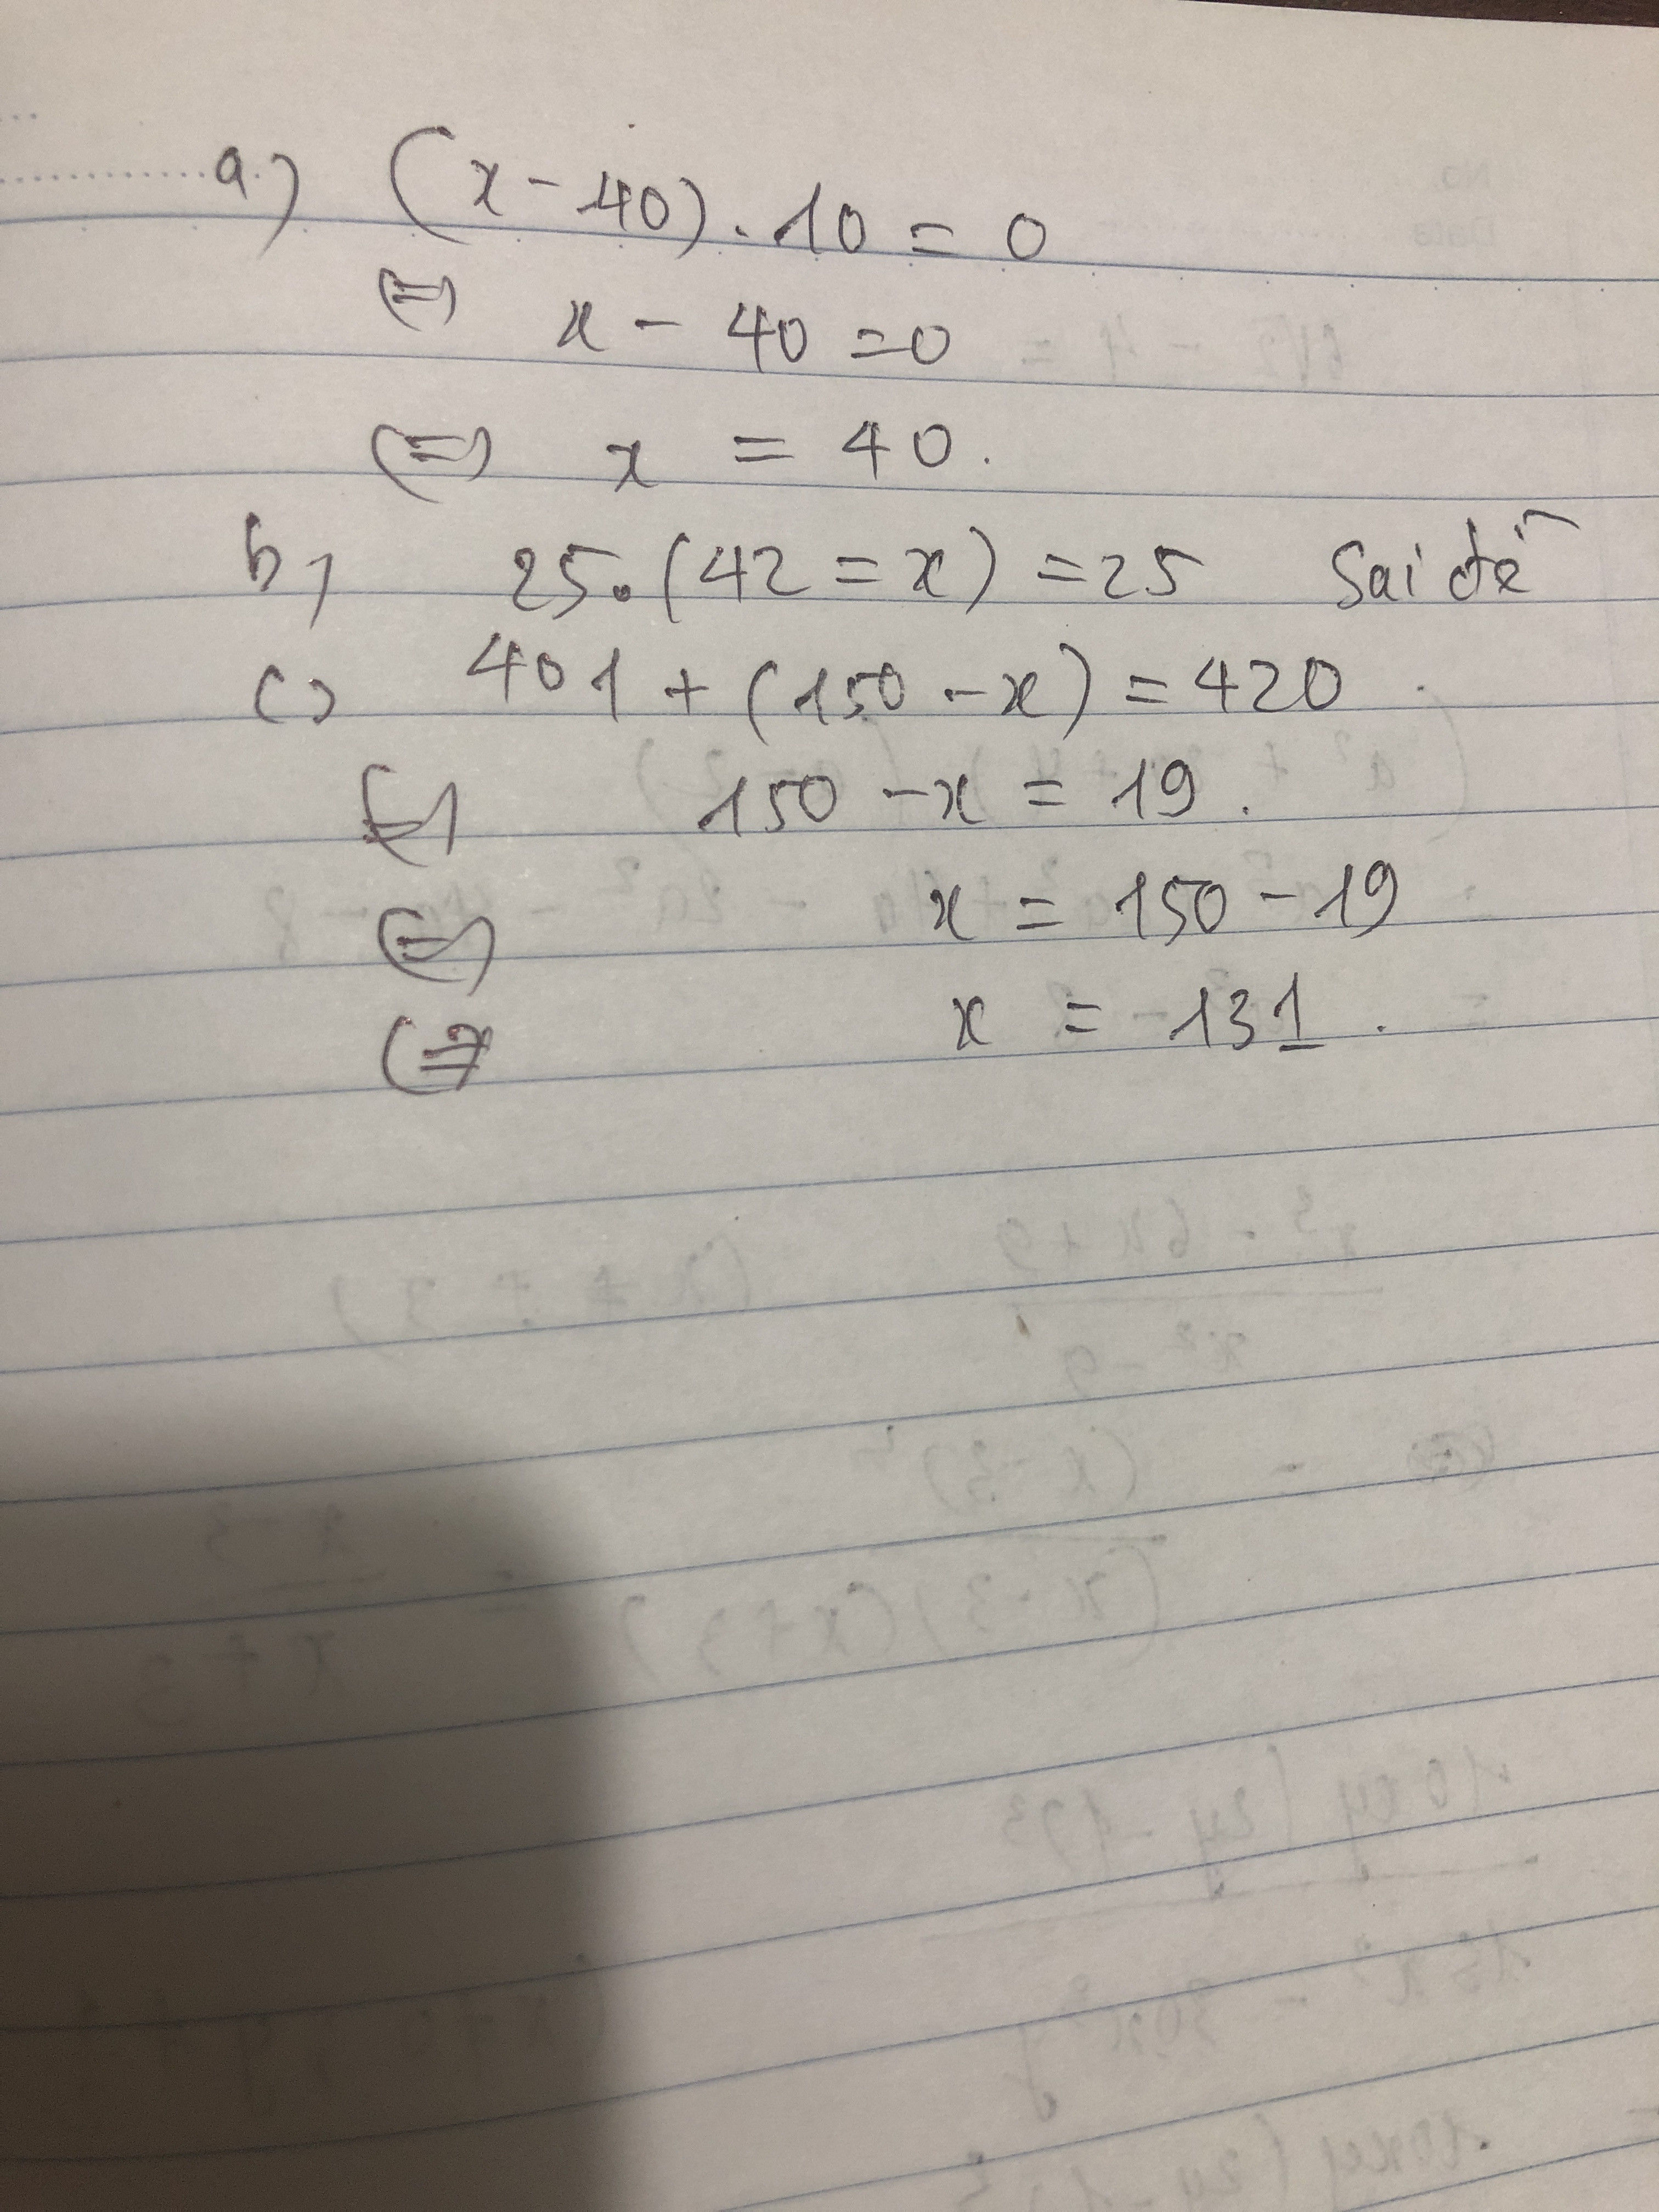 a.) (x - 40) . 10 = 0
(=) x - 40 = 0
(=) x = 40.
b) 25.(42 = x) = 25 Sai đề
c) 401 + (150 - x) = 420
(=) 150 - x = 19.
(=) x = 150 - 19
(=) x = 131.